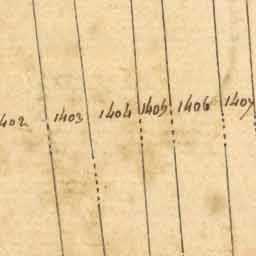 1402 1403 1404 1405 1406 1407